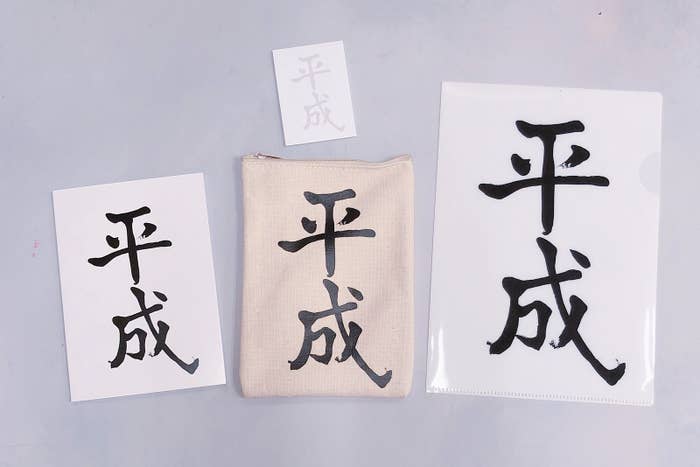 平成
平成
平成
平成